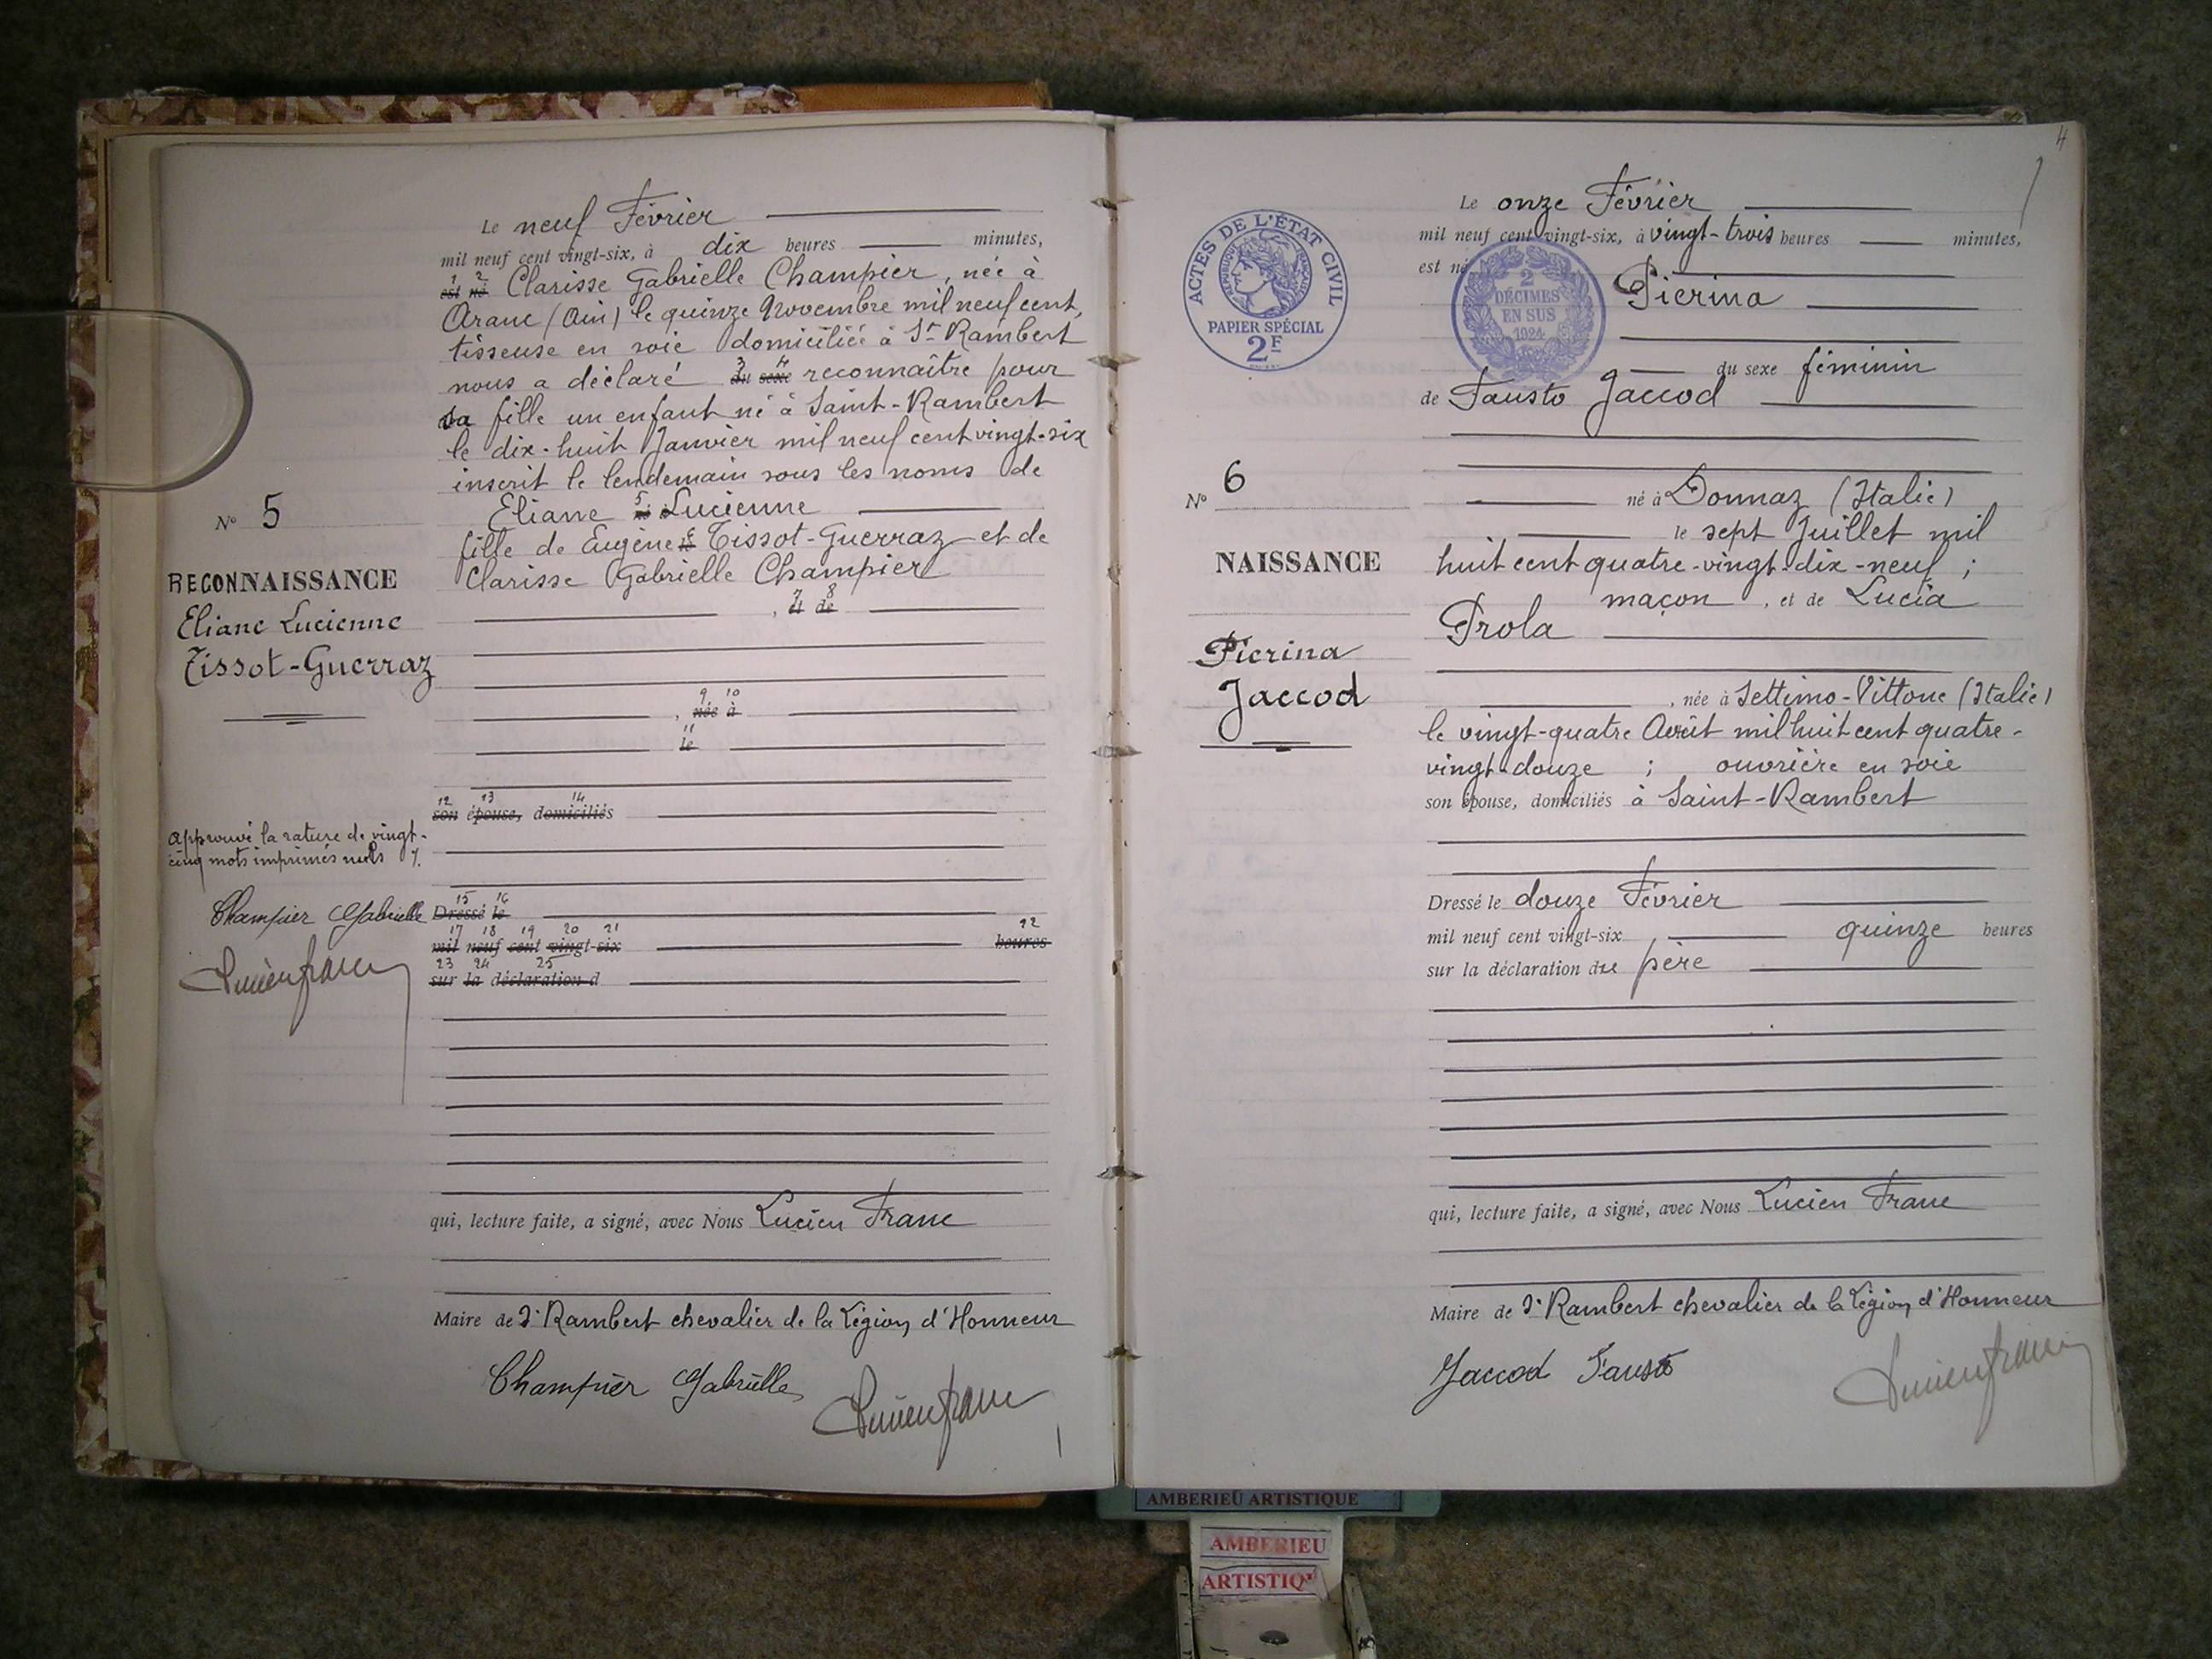 Le neuf Février
mil neuf cent vingt-six, à dix heures minutes,
1 2
est né Clarisse Gabrielle Champier, née à
Aranc (Ain) le quinze Novembre mil neuf cent,
tisseuse en soie domiciliée à St Rambert
3 4
nous a déclaré du sexe reconnaître pour
sa fille un enfant né à Saint-Rambert
le dix-huit Janvier mil neuf cent vingt-six
inscrit le lendemain sous les noms de
5
Eliane né à Lucienne
6
fille de Eugène le Tissot-Guerraz et de
Clarisse Gabrielle Champier
7 8
, et de
9 10
, née à
11
le
12 13 14
son épouse, domiciliés
15 16
Dressé le
17 18 19 20 21 22
mil neuf cent vingt-six heures
23 24 25
sur la déclaration d
qui, lecture faite, a signé, avec Nous Lucien Franc
Maire de St Rambert chevalier de la Légion d'Honneur
Champier Gabrielle Lucien franc
N° 5
RECONNAISSANCE
Eliane Lucienne
Tissot-Guerraz
Approuvé la rature de vingt-
cinq mots imprimés nuls
Champier Gabrielle
Lucien franc
4
ACTES DE L'ÉTAT CIVIL
RÉPUBLIQUE FRANÇAISE
PAPIER SPÉCIAL
2F
2
DÉCIMES
EN SUS
1924
N° 6
NAISSANCE
Pierina
Jaccod
Le onze Février
mil neuf cent vingt-six, à vingt-trois heures minutes,
est né
Pierina
du sexe féminin
de Fausto Jaccod
né à Donnaz (Italie)
le sept Juillet mil
huit cent quatre-vingt-dix-neuf ;
maçon , et de Lucia
Prola
, née à Settimo-Vittone (Italie)
le vingt-quatre Août mil huit cent quatre-
vingt-douze ; ouvrière en soie
son épouse, domiciliés à Saint-Rambert
Dressé le douze Février
mil neuf cent vingt-six quinze heures
sur la déclaration du père
qui, lecture faite, a signé, avec Nous Lucien Franc
Maire de St Rambert chevalier de la Légion d'Honneur
Jaccod Fausto Lucien franc
AMBERIEU ARTISTIQUE
AMBERIEU
ARTISTIQ